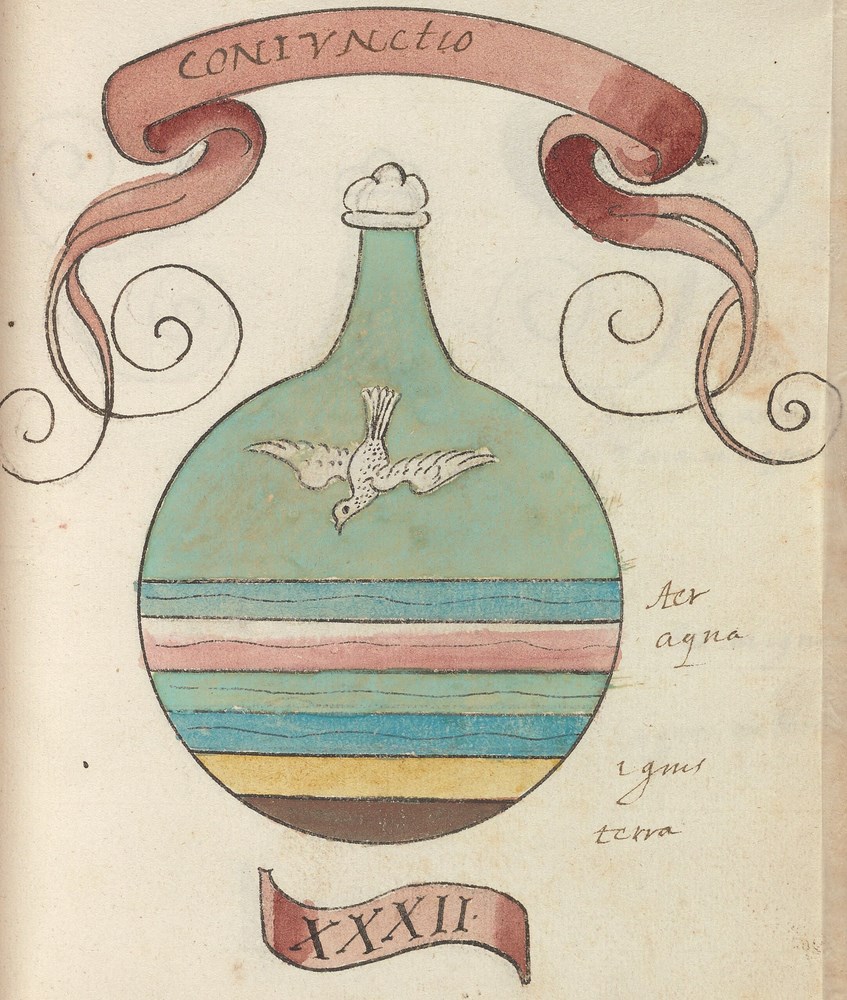 CONIVNCtIO
Aer
aqua
ignis
terra
XXXII.